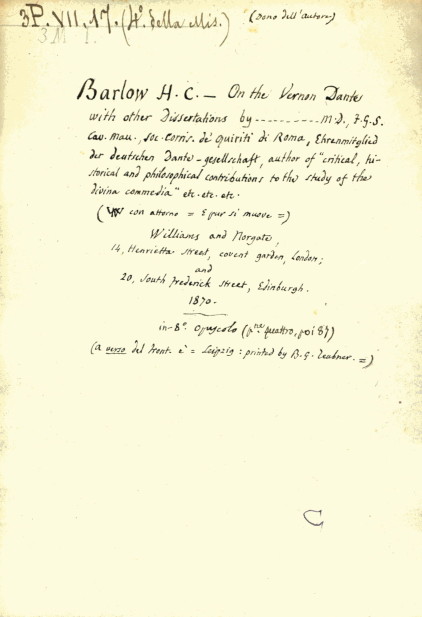 3P. VII. 17. (4º. della Mis.) (Dono dell'autore)
3M I.
Barlow H. C. — On the Vernon Dante
with other Dissertations by ---------- M.D., F.G.S.
Cav. Mau., Soc. Corris. de' Quiriti di Roma, Ehrenmitglied
der deutschen Dante-gesellschaft, author of "critical, hi-
storical and philosophical contributions to the study of the
divina commedia" etc. etc. etc.
( con attorno = E pur si muove =)
Williams and Norgate,
14, Henrietta street, covent garden, London;
and
20, South Frederick street, Edinburgh.
1870.
in-8º. opuscolo (p.ne quattro, poi 87)
(a verso del front. è = Leipzig: printed by B. G. Teubner. =)
C